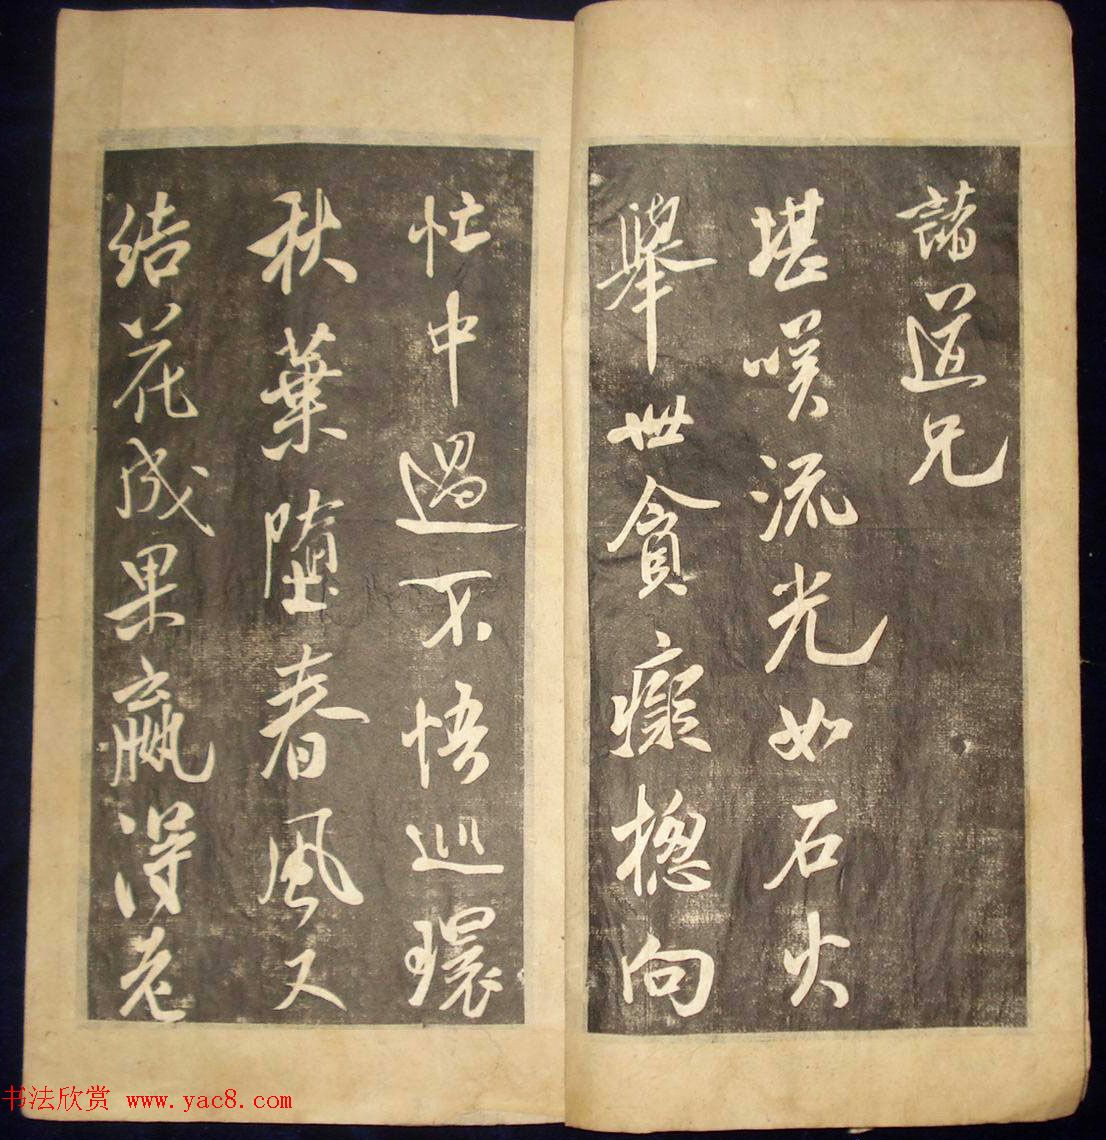 諸道兄
堪嘆流光如石火
舉世貪癡揔向
忙中過不悟巡環
秋葉墮春風又
結花成果贏得老
书法欣赏 www.yac8.com